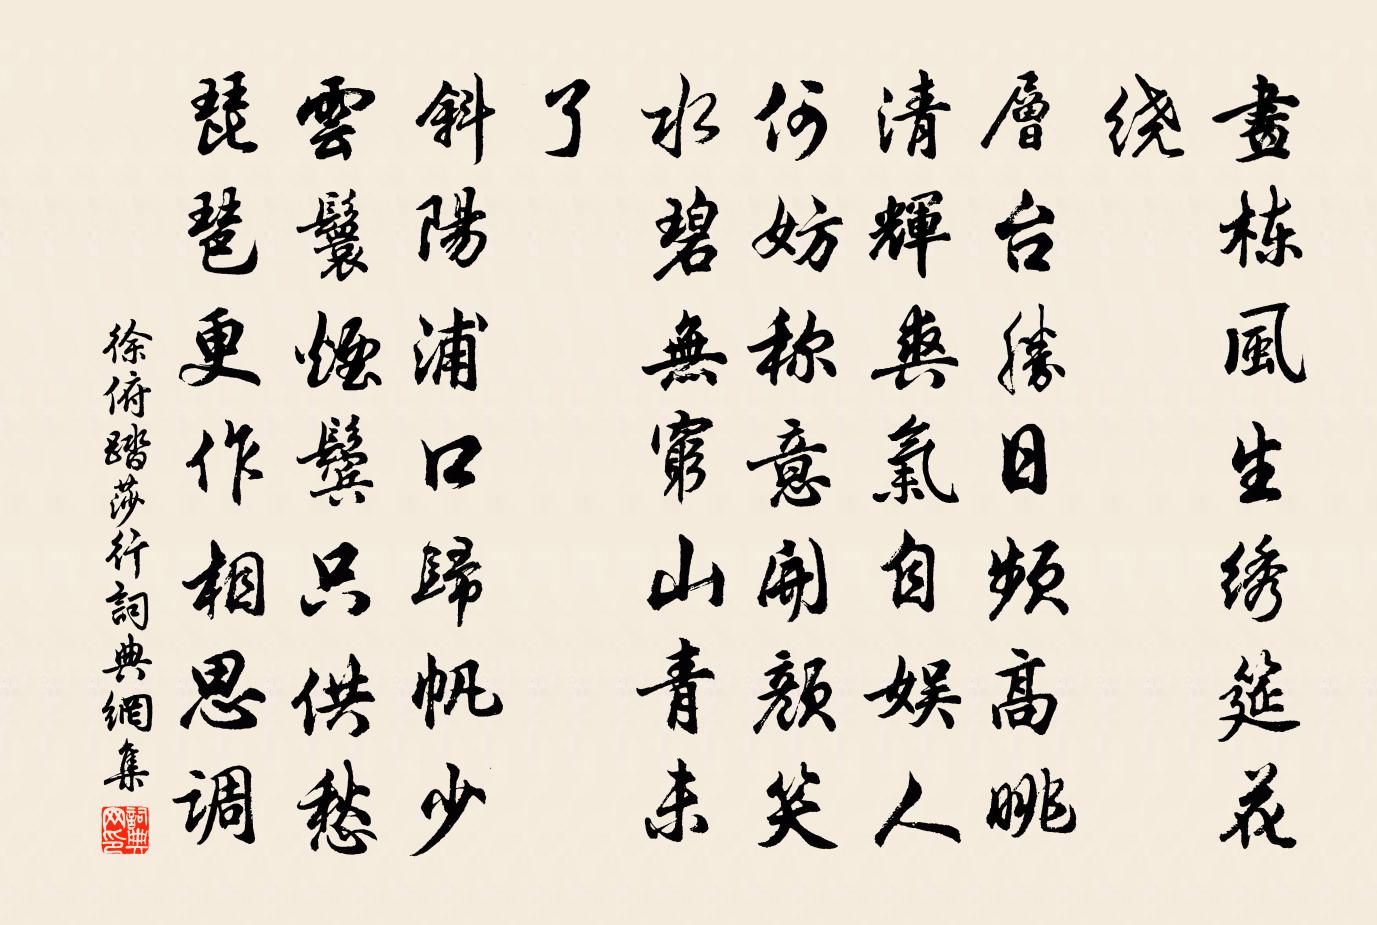 畫栋風生绣筵花
绕
層台勝日頻高眺
清輝爽氣自娱人
何妨称意開顏笑
水碧無窮山青未
了
斜陽浦口歸帆少
雲鬟煙鬓只供愁
琵琶更作相思调
徐俯踏莎行詞典網集
詞典网印